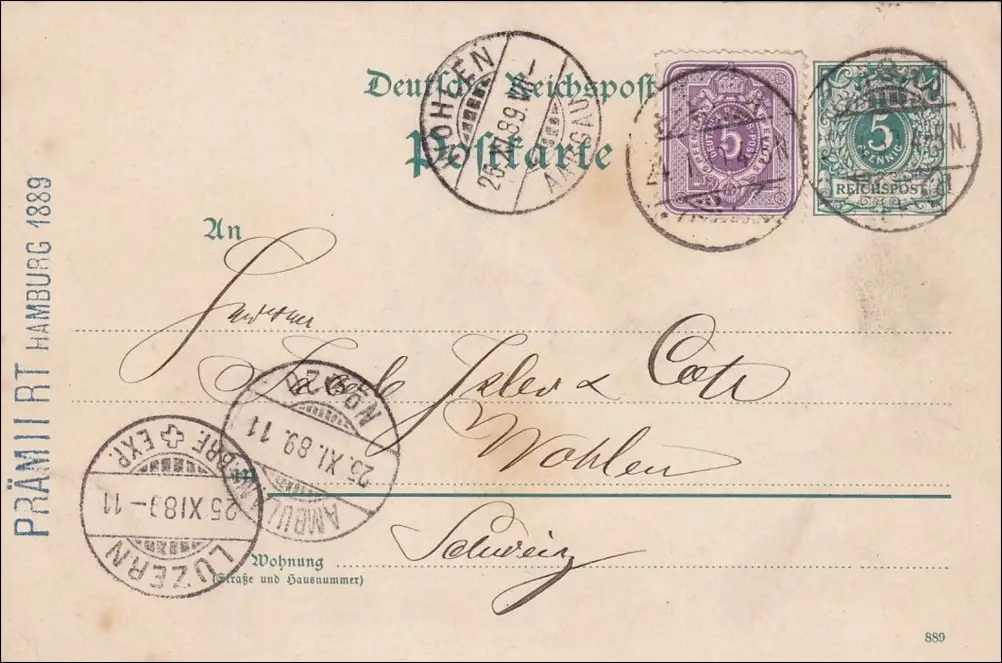 Deutsche Reichspost
Postkarte
5
5
PFENNIG
REICHSPOST
WOHLEN
26.XI.89.VII-
AARGAU
4-5N
PRÄMIIRT HAMBURG 1889
An
Herren
Isler & Coie
Wohlen
Schweiz
AMBUL
25.XI.89.11
LUZERN
BRF. EXP.
25 XI 89-11
Wohnung
(Straße und Hausnummer)
889